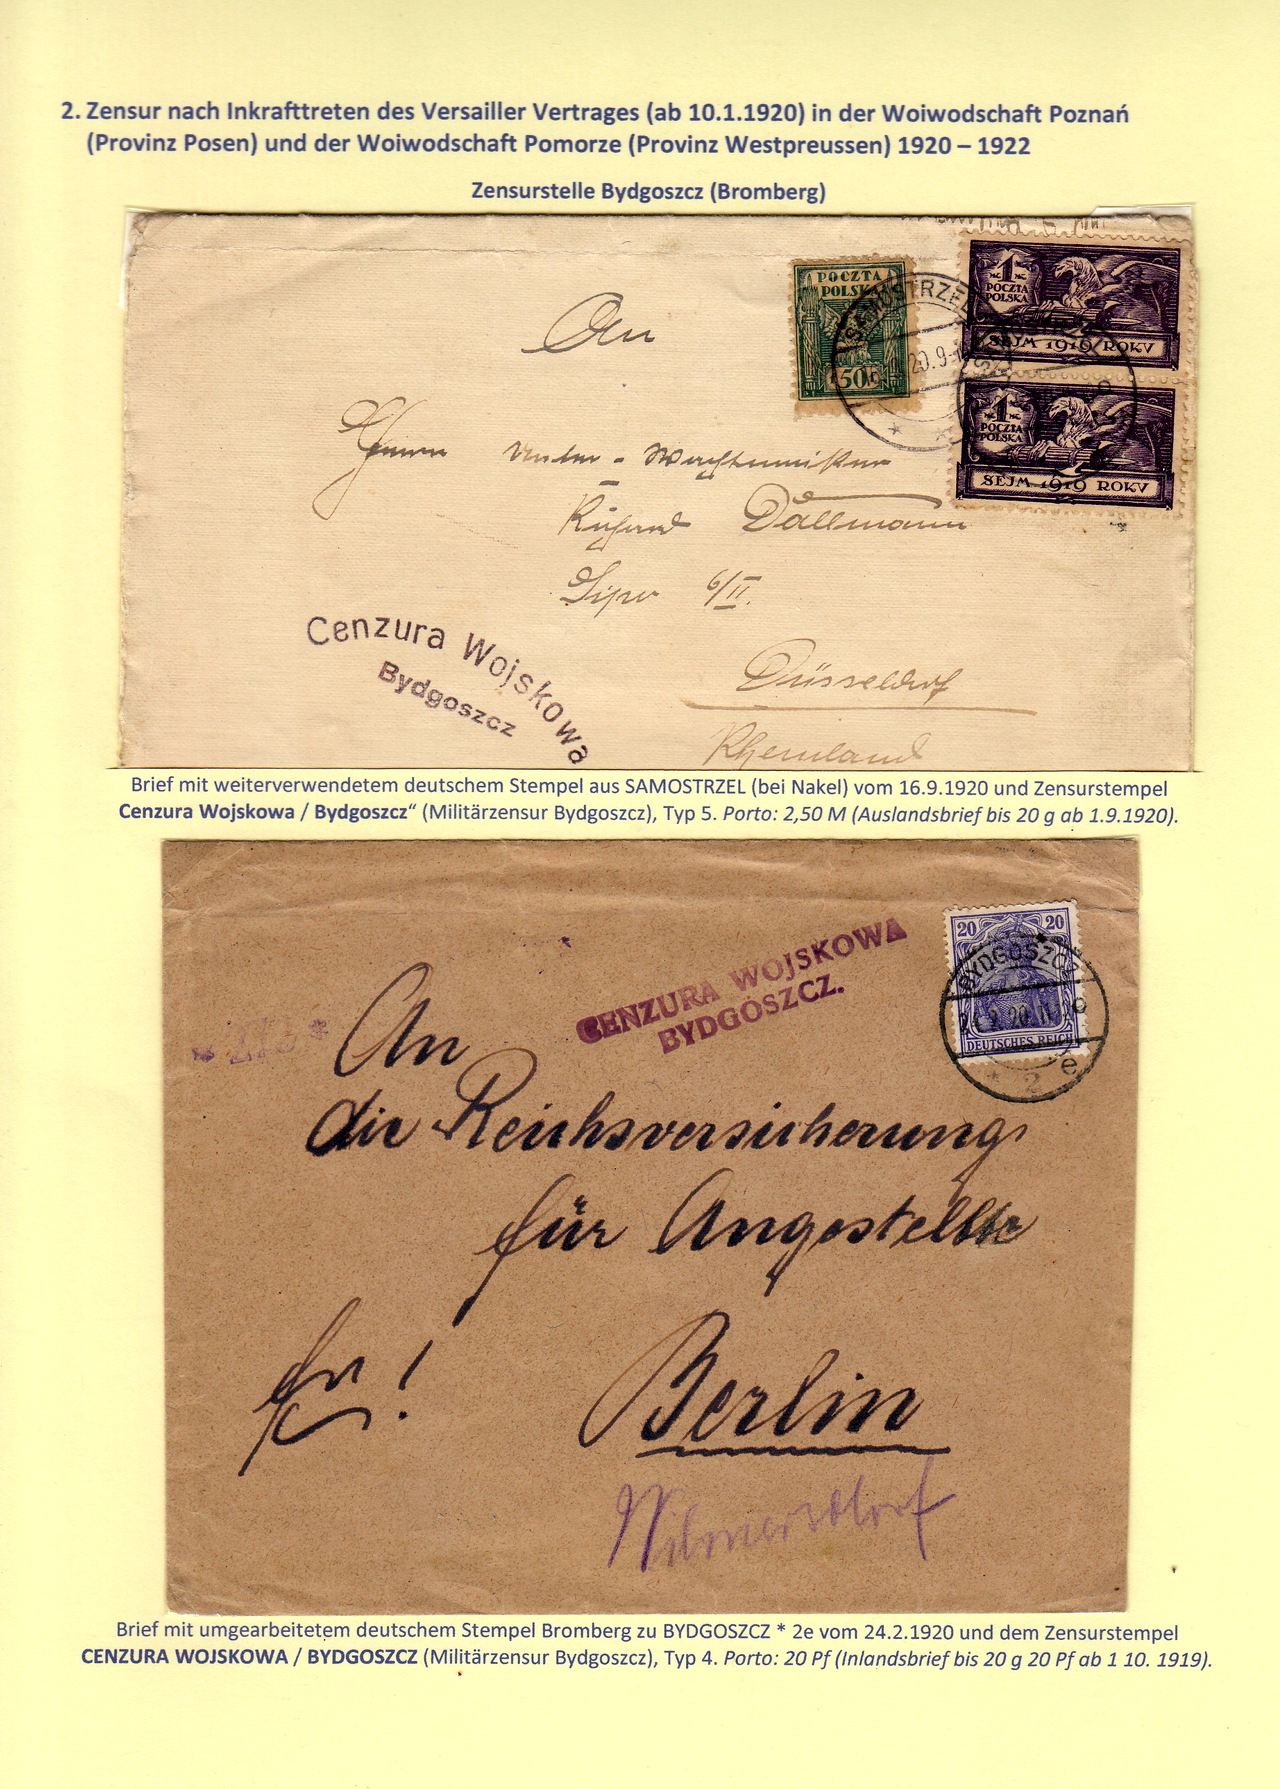 2. Zensur nach Inkrafttreten des Versailler Vertrages (ab 10.1.1920) in der Woiwodschaft Poznań
(Provinz Posen) und der Woiwodschaft Pomorze (Provinz Westpreussen) 1920 – 1922
Zensurstelle Bydgoszcz (Bromberg)
POCZTA
POLSKA
50
SAMOSTRZEL
20.9-
1
POCZTA
POLSKA
SEJM 1919 ROKV
1
POCZTA
POLSKA
SEJM 1919 ROKV
An
Herrn Unter-Wachtmeister
Dallmann
Sipo 6/II.
Düsseldorf
Rheinland
Cenzura Wojskowa
Bydgoszcz
Brief mit weiterverwendetem deutschem Stempel aus SAMOSTRZEL (bei Nakel) vom 16.9.1920 und Zensurstempel
Cenzura Wojskowa / Bydgoszcz“ (Militärzensur Bydgoszcz), Typ 5. Porto: 2,50 M (Auslandsbrief bis 20 g ab 1.9.1920).
CENZURA WOJSKOWA
BYDGOSZCZ.
20 20
DEUTSCHES REICH
BYDGOSZCZ
24.2.20.11
* 2 e
An
die Reichsversicherung
für Angestellte
Fr!
Berlin
Wilmersdorf
Brief mit umgearbeitetem deutschem Stempel Bromberg zu BYDGOSZCZ * 2e vom 24.2.1920 und dem Zensurstempel
CENZURA WOJSKOWA / BYDGOSZCZ (Militärzensur Bydgoszcz), Typ 4. Porto: 20 Pf (Inlandsbrief bis 20 g 20 Pf ab 1 10. 1919).